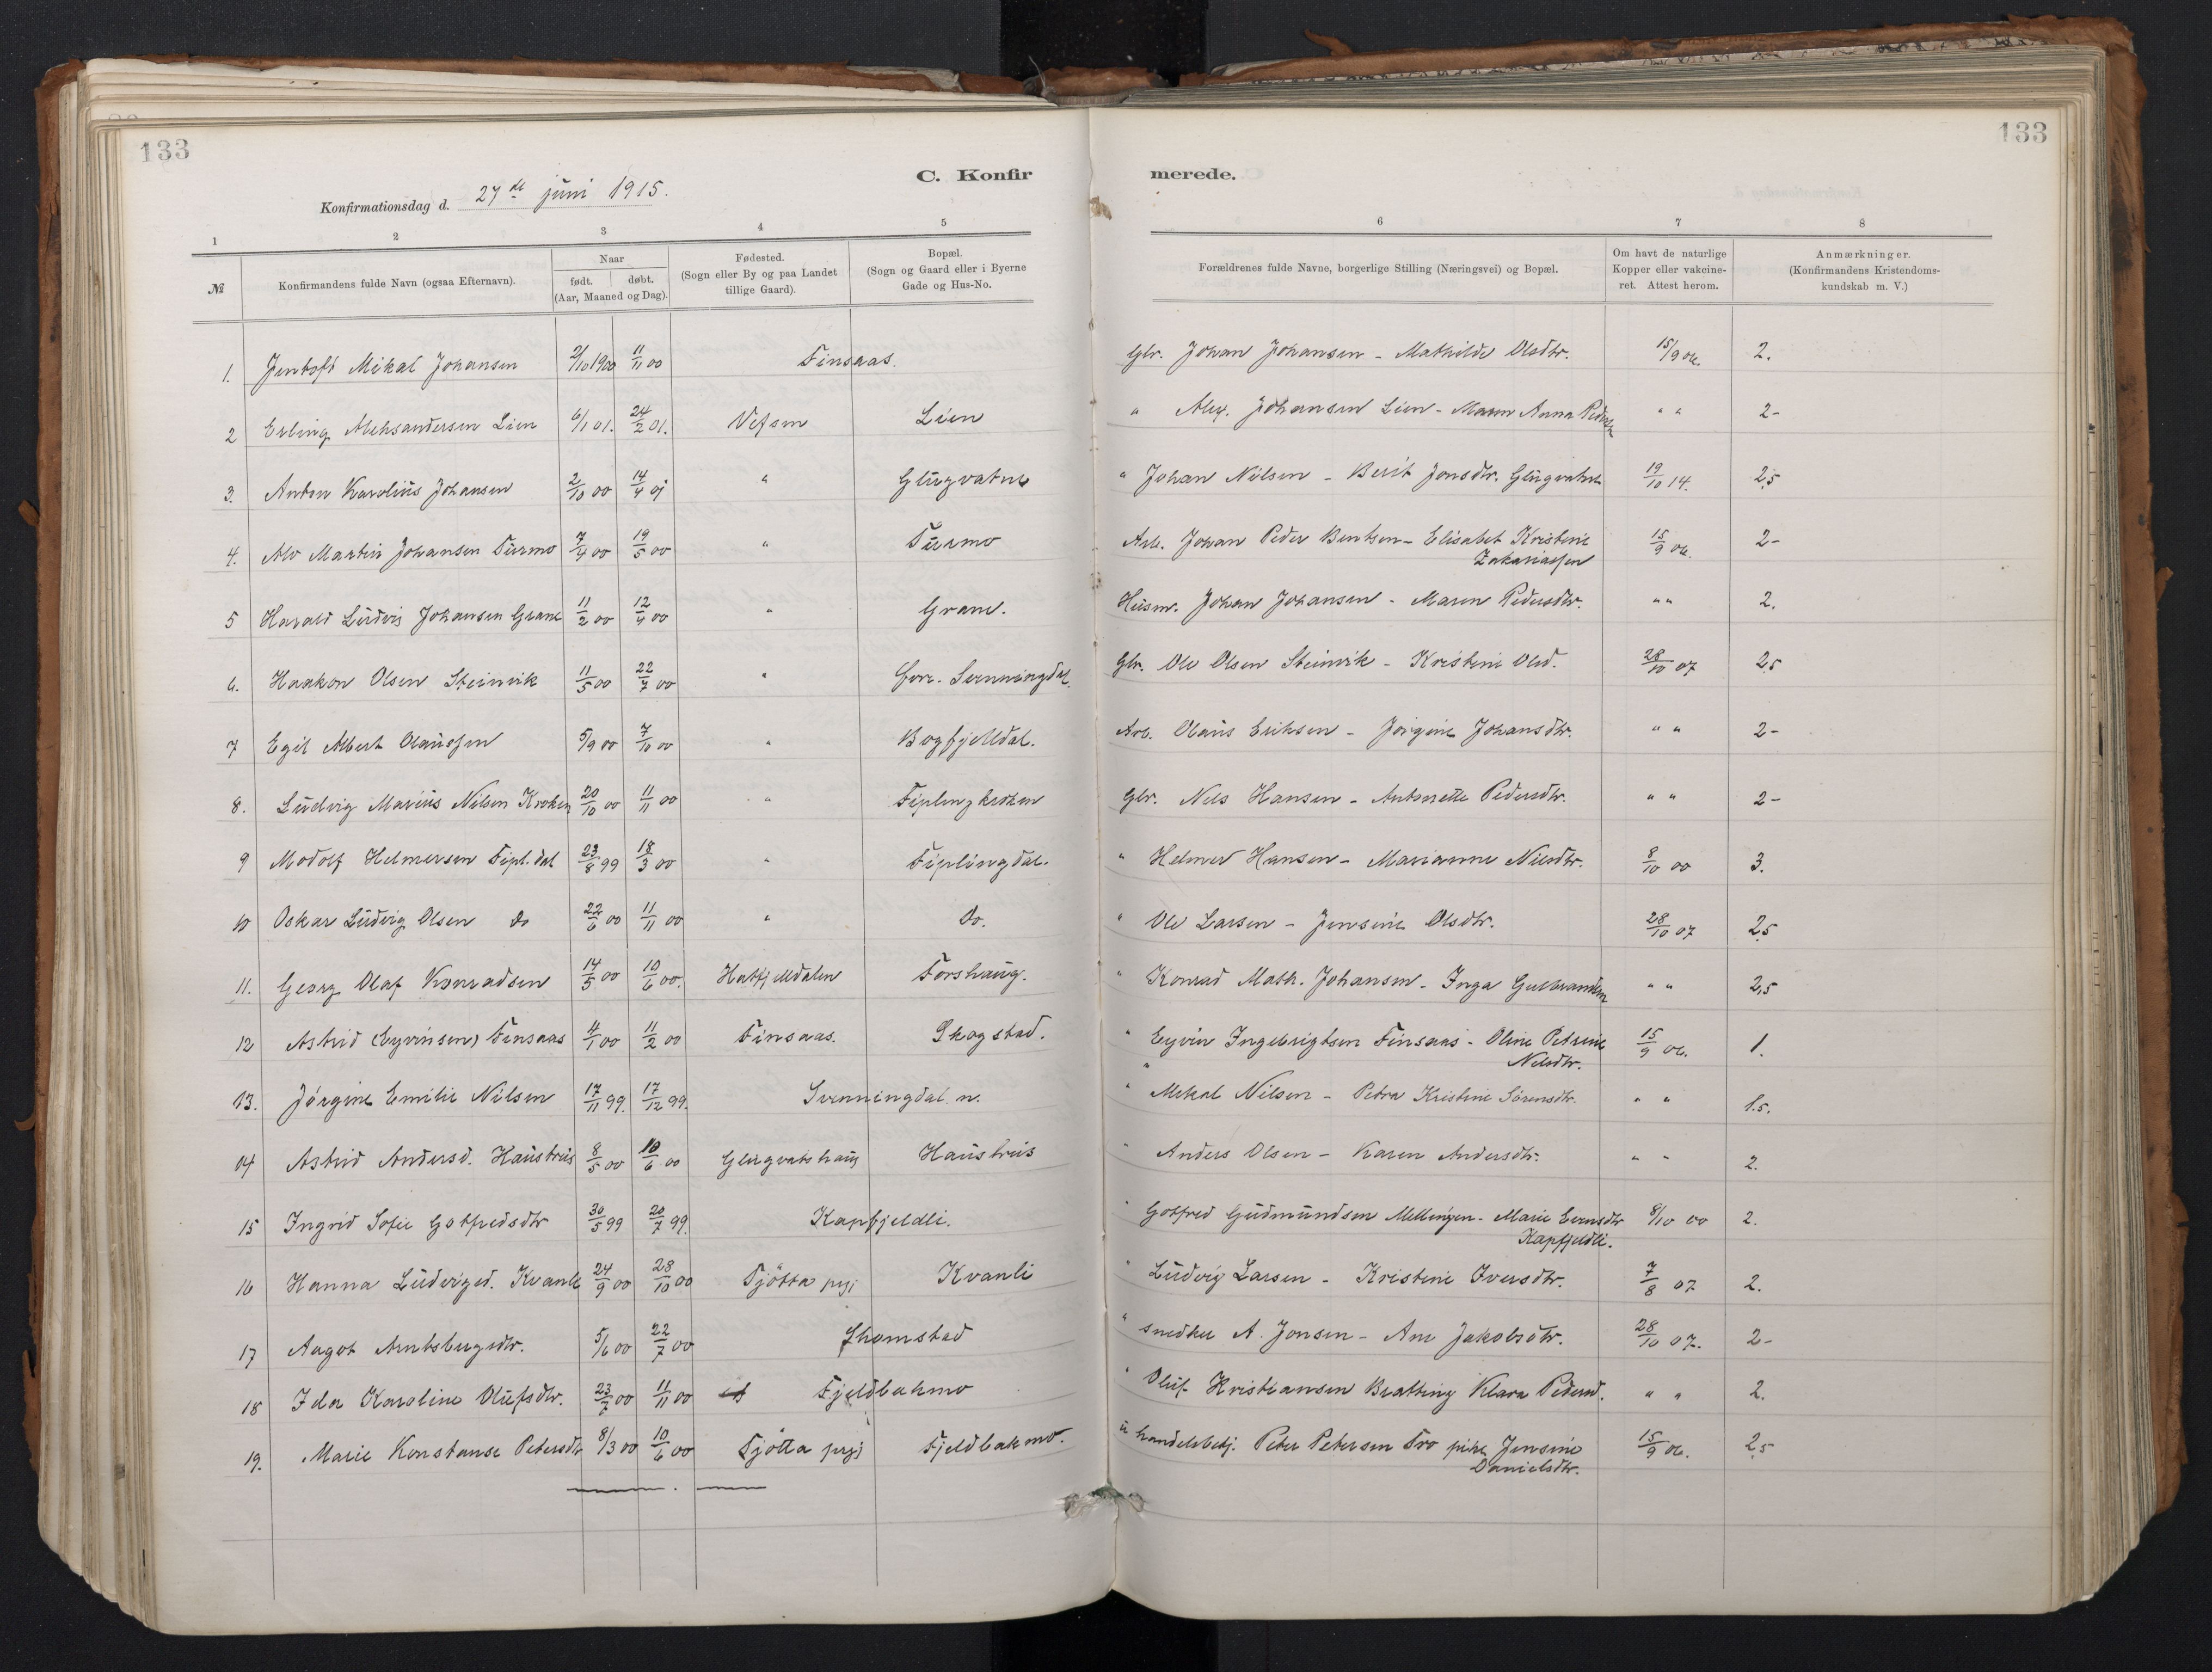 133
133
C. Konfir
merede.
Konfirmationsdag d. 27de juni 1915.
1 2 3 4 5
6 7 8
№
Konfirmandens fulde Navn (ogsaa Efternavn).
Naar
født. døbt.
(Aar, Maaned og Dag).
Fødested.
(Sogn eller By og paa Landet
tillige Gaard).
Bopæl.
(Sogn og Gaard eller i Byerne
Gade og Hus-No.
Forældrenes fulde Navne, borgerlige Stilling (Næringsvei) og Bopæl.
Om havt de naturlige
Kopper eller vakcine-
ret. Attest herom.
Anmærkninger.
(Konfirmandens Kristendoms-
kundskab m. V.)
1. Jentoft Mikal Johansen 2/10 1900 11/11 00 Finsaas. Glr. Johan Johansen - Mathilde Olsdtr. 15/9 06. 2.
2 Erling Aleksandersen Lien 6/1 01. 24/2 01. Vefsen Lien " Alex. Johansen Lien - Maren Anna " " 2-
3. Anton Karolius Johansen 2/10 00 14/4 01 " Glugvatne " Johan Nilsen - Berit Jonsdtr. Glugvatne 19/10 14. 2,5
4. Alv Martin Johansen Turmo 7/4 00 19/5 00 " Turmo Arb. Johan Peder Bentsen - Elisabet Kristine 15/9 06. 2-
Zakariassen
5 Harald Ludvig Johansen Grane 11/2 00 12/4 00 " Grane. Husm. Johan Johansen - Maren Pedersdtr. " " 2.
6. Haakon Olsen Steinvik 11/5 00 22/7 00 " Svenningdal. Glr. Ole Olsen Steinvik - Kristine Olsd. 28/10 07 2,5
7 Egil Albert Olaussen 5/9 00 7/10 00 " Bogfjelldal. Arb. Olaus Eriksen - Jørgine Johansdtr. " " 2-
8. Ludvig Marius Nilsen Kroken 20/10 00 11/11 00 " Fiplingkroken Glr. Nils Hansen - Antonette Pedersdtr. " " 2-
9 Modolf Helmersen Fipl.dal 23/8 99 18/3 00 " Fiplingdal. " Helmer Hansen - Marianne Nilsdtr. 8/10 00 3.
10 Oskar Ludvig Olsen do 22/6 00 11/11 00 " Do. " Ole Larsen - Jensine Olsdtr. 28/10 07 2,5
11. Georg Olaf Konradsen 14/5 00 10/6 00. Hatfjelldalen Forshaug. " Konrad Math. Johansen - Inga Gulbrandsen " " 2,5
12 Astrid (Eyvinsen) Finsaas 4/1 00 11/2 00 Finsaas. Skogstad. " Eyvin Ingebrigtsen Finsaas - Oline Petrine 15/9 06. 1.
" Nilsdtr.
13. Jørgine Emilie Nilsen 17/11 99. 17/12 99. Svenningdal n. " Mikal Nilsen - Petra Kristine Sørensdtr. " " 1.5.
14 Astrid Andersd. Haustreis 8/5 00 10/6 00 Glugvatshaug Haustreis " Anders Olsen - Karen Andersdtr. " " 2.
15 Ingrid Sofie Gotfredsdtr 30/5 99 20/7 99. Kapfjeldli. " Gotfred Gudmundsen Mellingen - Marie Evensdtr 8/10 00 2.
Kapfjeldli.
16 Hanna Ludvigsd. Kvanli 24/9 00 28/10 00 Tjötta prgj Kvanli " Ludvig Larsen - Kristine Iversdtr. 7/8 07 2.
17 Aagot Arntsbergsdtr. 5/6 00 22/7 00 " snedker A. Jonsen - Ane Jakobsdtr. 28/10 07. 2-
18 Ida Karoline Olufsdtr. 00 11/11 00 Fjeldbakmo " Oluf Kristiansen Bratting Klara Pedersd. " " 2.
19. Marie Konstanse Petersdtr 8/3 00 10/6 00 Tjötta prgj Fjeldbakmo. handelsbetj. Peter Petersen Tro pike Jensine 15/9 06. 2,5
Danielsdtr.